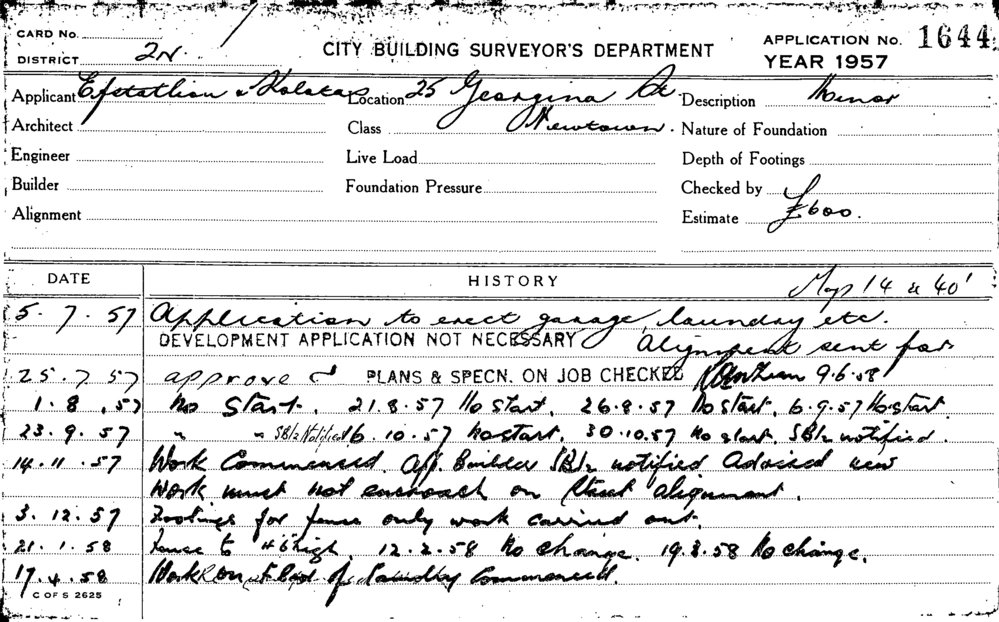 CARD No.
DISTRICT 2N.
CITY BUILDING SURVEYOR'S DEPARTMENT
APPLICATION No. 1644
YEAR 1957
Applicant Efstathion & Kolotas Location 25 Georgina St Description Minor
Architect Class Newtown. Nature of Foundation
Engineer Live Load Depth of Footings
Builder Foundation Pressure Checked by
Alignment Estimate £600.
DATE HISTORY
Map 14 & 40'
5. 7. 57 Application to erect garage, laundry etc.
DEVELOPMENT APPLICATION NOT NECESSARY Alignment sent for
25. 7. 57 approved PLANS & SPECN. ON JOB CHECKED 9.6.58
1. 8. 57 No start. 21.8.57 No start. 26.8.57 No start. 6.9.57 No start
23. 9. 57 " " SB/2 Notified 16.10.57 No start. 30.10.57 No start. SB/2 notified.
14. 11. 57 Work Commenced. App. Builder SB/2 notified Advised new
work must not encroach on Street alignment.
3. 12. 57 Footings for fence only work carried out.
21. 1. 58 Fence to 4'6" high. 12.2.58 No change. 19.3.58 No change.
17. 4. 58 Work on of laundry Commenced.
C OF S 2625